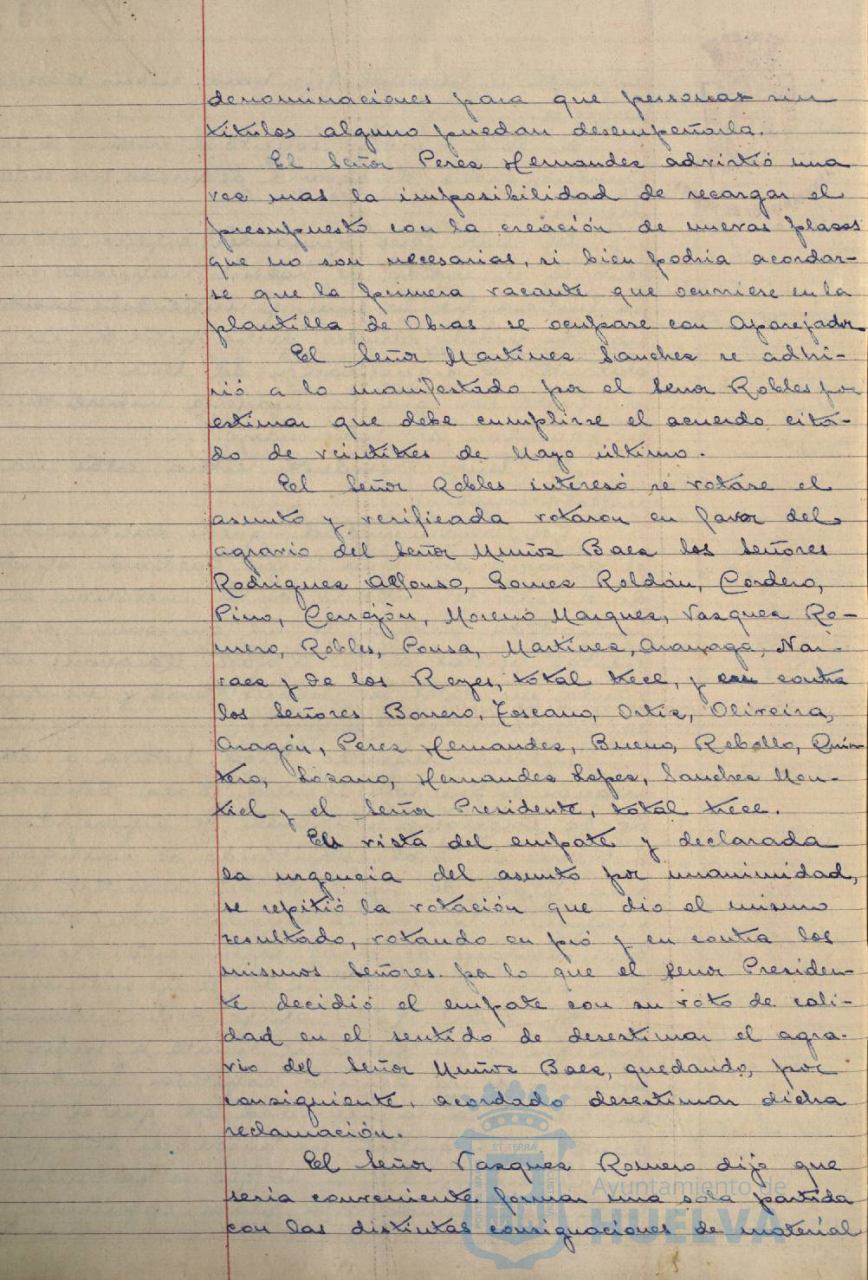 denominaciones para que personas sin
títulos alguno puedan desempeñarla.
El Señor Perez Hernandez advirtió una
vez mas la imposibilidad de recargar el
presupuesto con la creación de nuevas plazas
que no son necesarias, si bien podria acordar-
se que la primera vacante que ocurriese en la
plantilla de Obras se ocupase con Aparejador
El Señor Martinez Sanchez se adhi-
rió a lo manifestado por el Señor Robles por
estimar que debe cumplirse el acuerdo cita-
do de veintitres de Mayo último.
El Señor Robles interesó se votase el
asunto y verificada votaron en favor del
agravio del Señor Muñoz Baez los Señores
Rodriguez Alfonso, Gomez Roldán, Cordero,
Pino, Cerrejón, Moreno Marquez, Vazquez Ro-
mero, Robles, Ponsa, Martínez, Arayaga, Nar-
vaez y de los Reyes, total trece, y en contra
los Señores Borrero, Toscano, Ortiz, Oliveira,
Aragón, Perez Hernandez, Bueno, Rebollo, Quin-
tero, Lozano, Hernandez Lopez, Sanchez Mon-
tiel y el Señor Presidente, total trece.
En vista del empate y declarada
la urgencia del asunto por unanimidad,
se repitió la votación que dio el mismo
resultado, votando en pró y en contra los
mismos Señores. por lo que el Señor Presiden-
te decidió el empate con su voto de cali-
dad en el sentido de desestimar el agra-
vio del Señor Muñoz Baez, quedando, por
consiguiente, acordado desestimar dicha
reclamación.
El Señor Vazquez Romero dijo que
seria conveniente formar una sola partida
con las distintas consignaciones de material
Ayuntamiento de
HUELVA